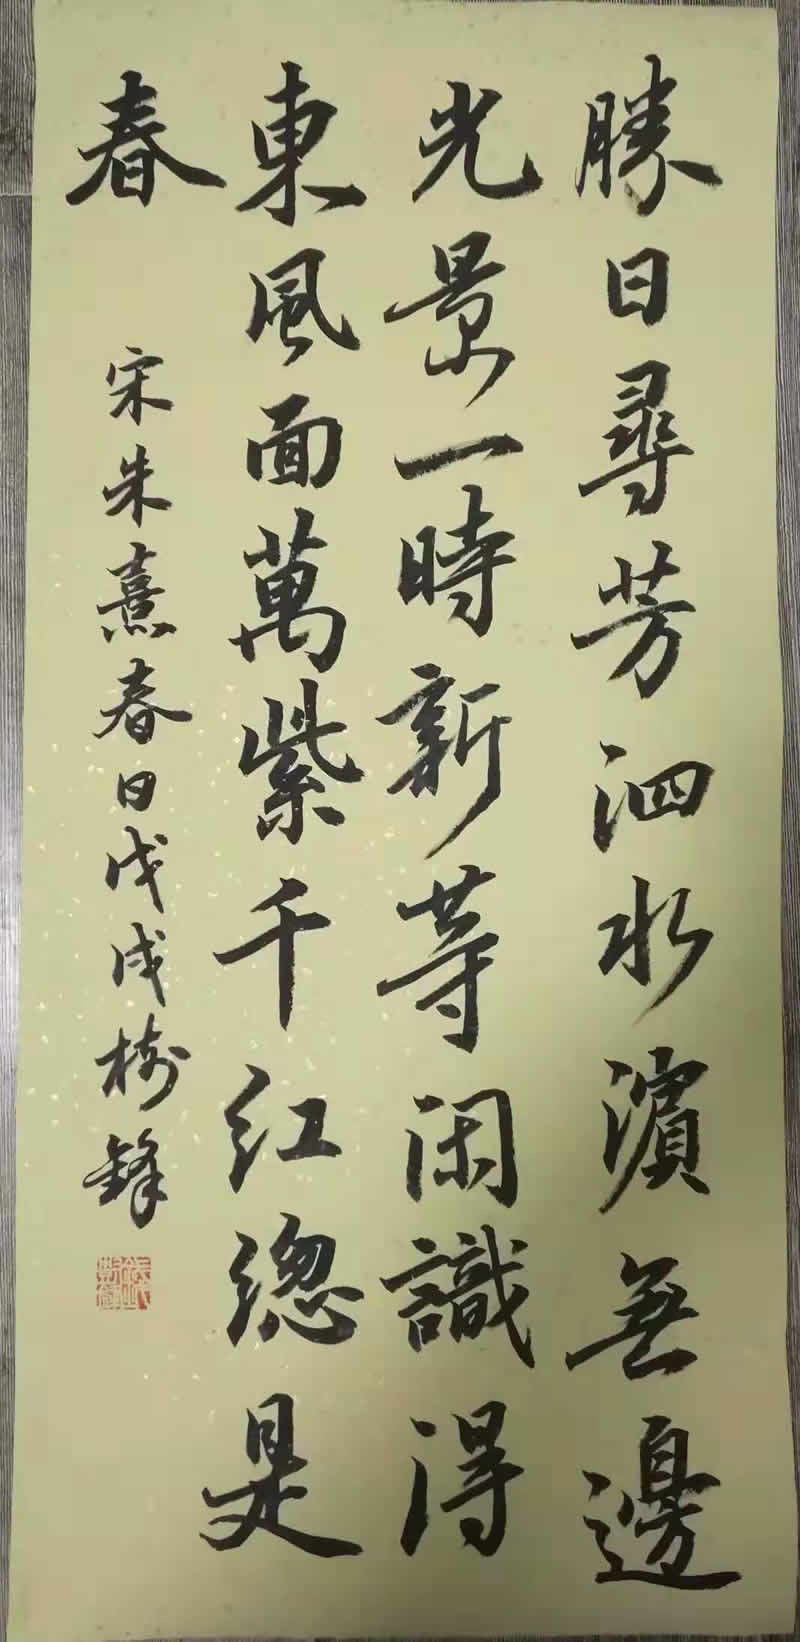 勝日尋芳泗水濱無邊
光景一時新等閑識得
東風面萬紫千紅總是
春
宋朱熹春日戊戌樹鋒